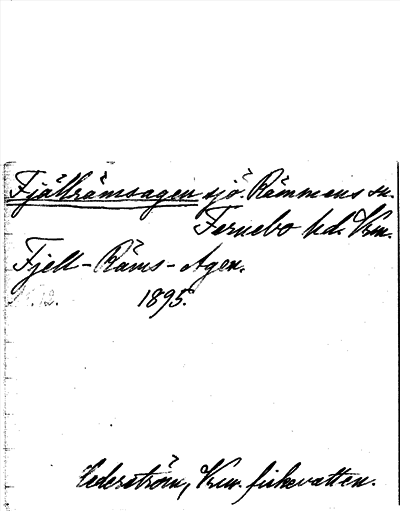 Fjällrämsagen sjö. Rämmens sn.
Fernebo hd. Vrm.
Fjell-Räms-Agen.
12. 1895.
Cederström, Vrm. fiskevatten.